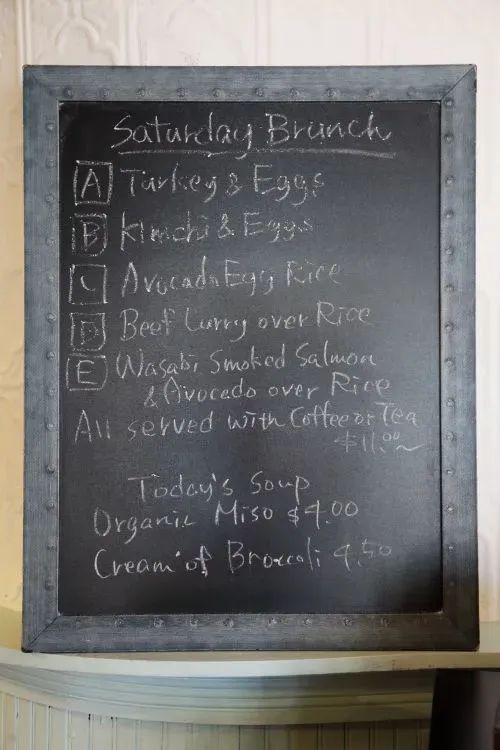 Saturday Brunch
A Turkey & Eggs
B Kimchi & Eggs
C Avocado Egg Rice
D Beef Curry over Rice
E Wasabi Smoked Salmon
& Avocado over Rice
All served with Coffee or Tea
$11.00~
Today's Soup
Organic Miso $4.00
Cream of Broccoli 4.50